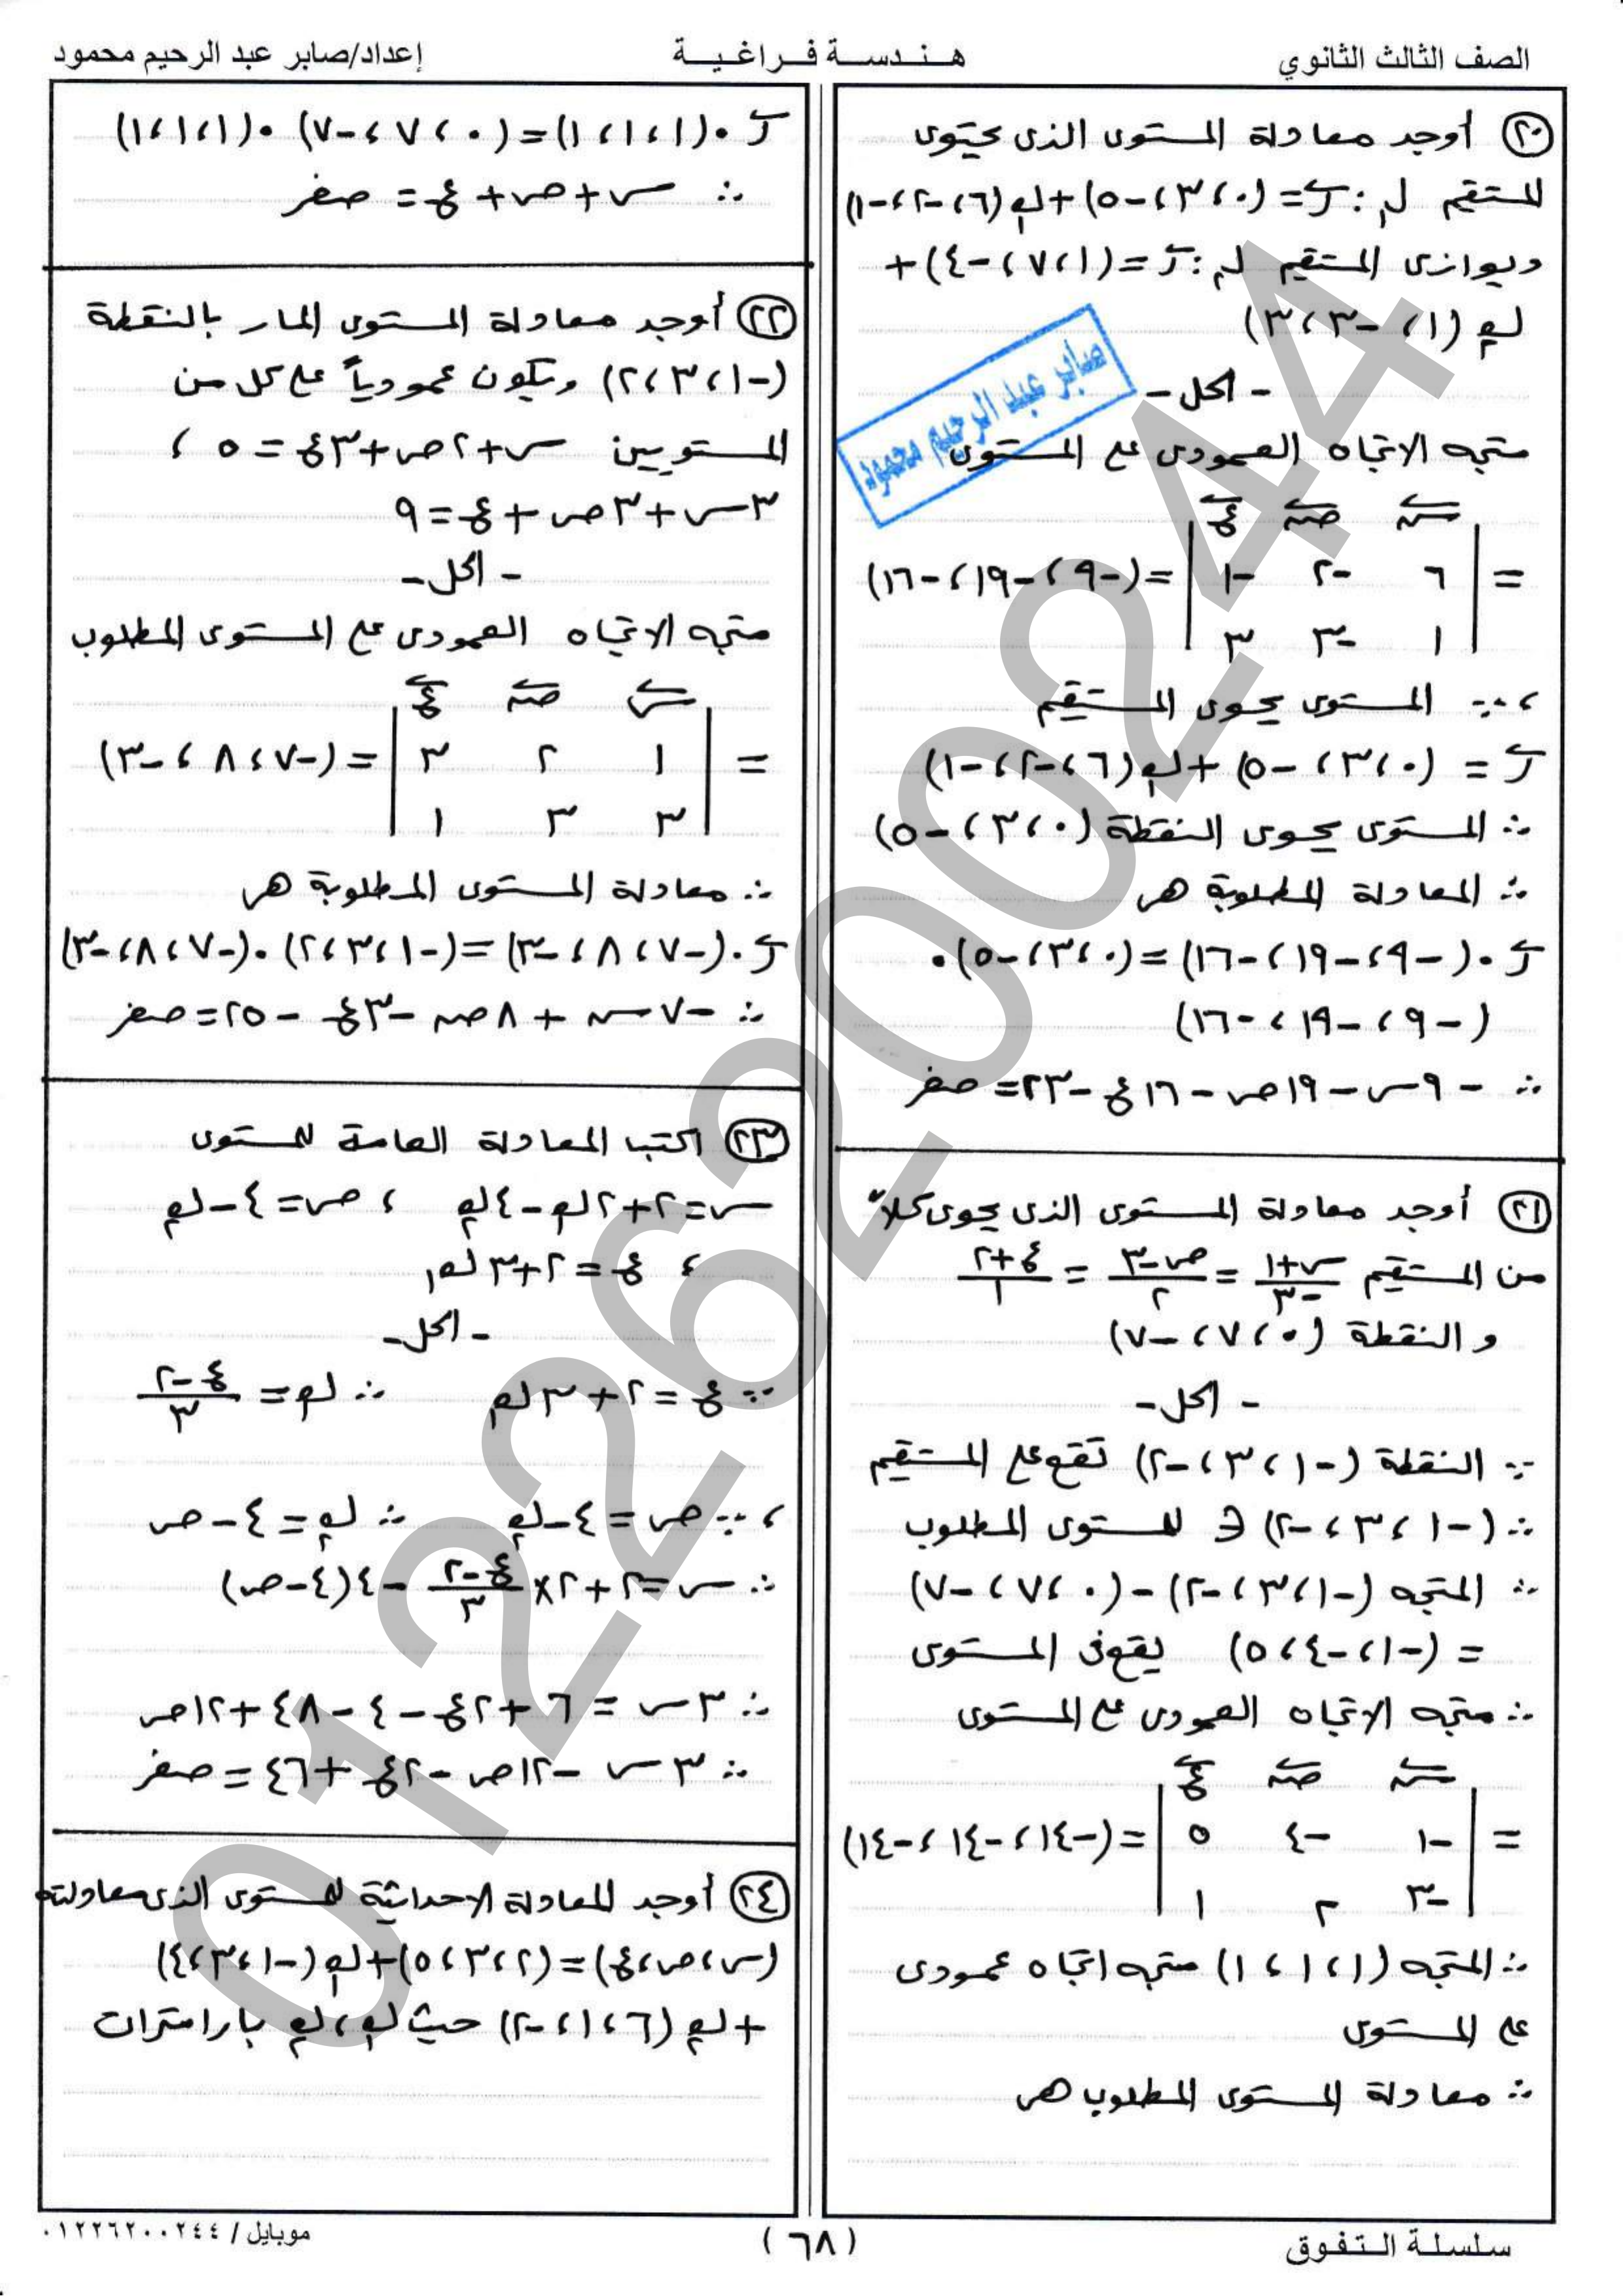 الصف الثالث الثانوي
هندسة فراغية
إعداد/صابر عبد الرحيم محمود
٢٠ أوجد معادلة المستوى الذى يحتوى
المستقيم ل١ : ر = (٠، ٣، -٥) + ك١(٦، -٢، -١)
ويوازى المستقيم ل٢ : ر = (١، ٧، -٤) +
ك٢(١، -٣، ٣)
- الحل -
صابر عبد الرحيم محمود
متجه الاتجاه العمودى على المستوى
س ص ع
= | ٦ -٢ -١ | = (-٩، -١٩، -١٦)
| ١ -٣ ٣ |
، ∵ المستوى يحوى المستقيم
ر = (٠، ٣، -٥) + ك١(٦، -٢، -١)
∴ المستوى يحوى النقطة (٠، ٣، -٥)
∴ المعادلة المطلوبة هى
ر • (-٩، -١٩، -١٦) = (٠، ٣، -٥) •
(-٩، -١٩، -١٦)
∴ -٩س - ١٩ص - ١٦ع - ٢٣ = صفر
٢١ أوجد معادلة المستوى الذى يحوى كلاً
من المستقيم (س+١)/-٣ = (ص-٣)/٢ = (ع+٢)/١
و النقطة (٠، ٧، -٧)
- الحل -
∵ النقطة (-١، ٣، -٢) تقع على المستقيم
∴ (-١، ٣، -٢) ∈ للمستوى المطلوب
∴ المتجه (-١، ٣، -٢) - (٠، ٧، -٧)
= (-١، -٤، ٥) يقع فى المستوى
∴ متجه الاتجاه العمودى على المستوى
س ص ع
= | -١ -٤ ٥ | = (-١٤، -١٤، -١٤)
| -٣ ٢ ١ |
∴ المتجه (١، ١، ١) متجه اتجاه عمودى
على المستوى
∴ معادلة المستوى المطلوب هى
ر • (١، ١، ١) = (٠، ٧، -٧) • (١، ١، ١)
∴ س + ص + ع = صفر
٢٢ أوجد معادلة المستوى المار بالنقطة
(-١، ٣، ٢) ويكون عمودياً على كل من
المستويين س + ٢ص + ٣ع = ٥ ،
٣س + ٣ص + ع = ٩
- الحل -
متجه الاتجاه العمودى على المستوى المطلوب
س ص ع
= | ١ ٢ ٣ | = (-٧، ٨، -٣)
| ٣ ٣ ١ |
∴ معادلة المستوى المطلوبة هى
ر • (-٧، ٨، -٣) = (-١، ٣، ٢) • (-٧، ٨، -٣)
∴ -٧س + ٨ص - ٣ع - ٢٥ = صفر
٢٣ اكتب المعادلة العامة للمستوى
س = ٢ + ٢ك١ - ٤ك٢ ، ص = ٤ - ك٢
، ع = ٢ + ٣ك١
- الحل -
∵ ع = ٢ + ٣ك١ ∴ ك١ = (ع-٢)/٣
، ∵ ص = ٤ - ك٢ ∴ ك٢ = ٤ - ص
∴ س = ٢ + ٢ × (ع-٢)/٣ - ٤(٤ - ص)
∴ ٣س = ٦ + ٢ع - ٤ - ٤٨ + ١٢ص
∴ ٣س - ١٢ص - ٢ع + ٤٦ = صفر
٢٤ أوجد المعادلة الاحداثية للمستوى الذى معادلته
(س، ص، ع) = (٢، ٣، ٥) + ك١(-١، ٣، ٤)
+ ك٢(٦، ١، -٢) حيث ك١، ك٢ بارامترات
سلسلة التفوق
(٦٨)
موبايل / ٠١٢٢٦٢٠٠٢٤٤
01226200244